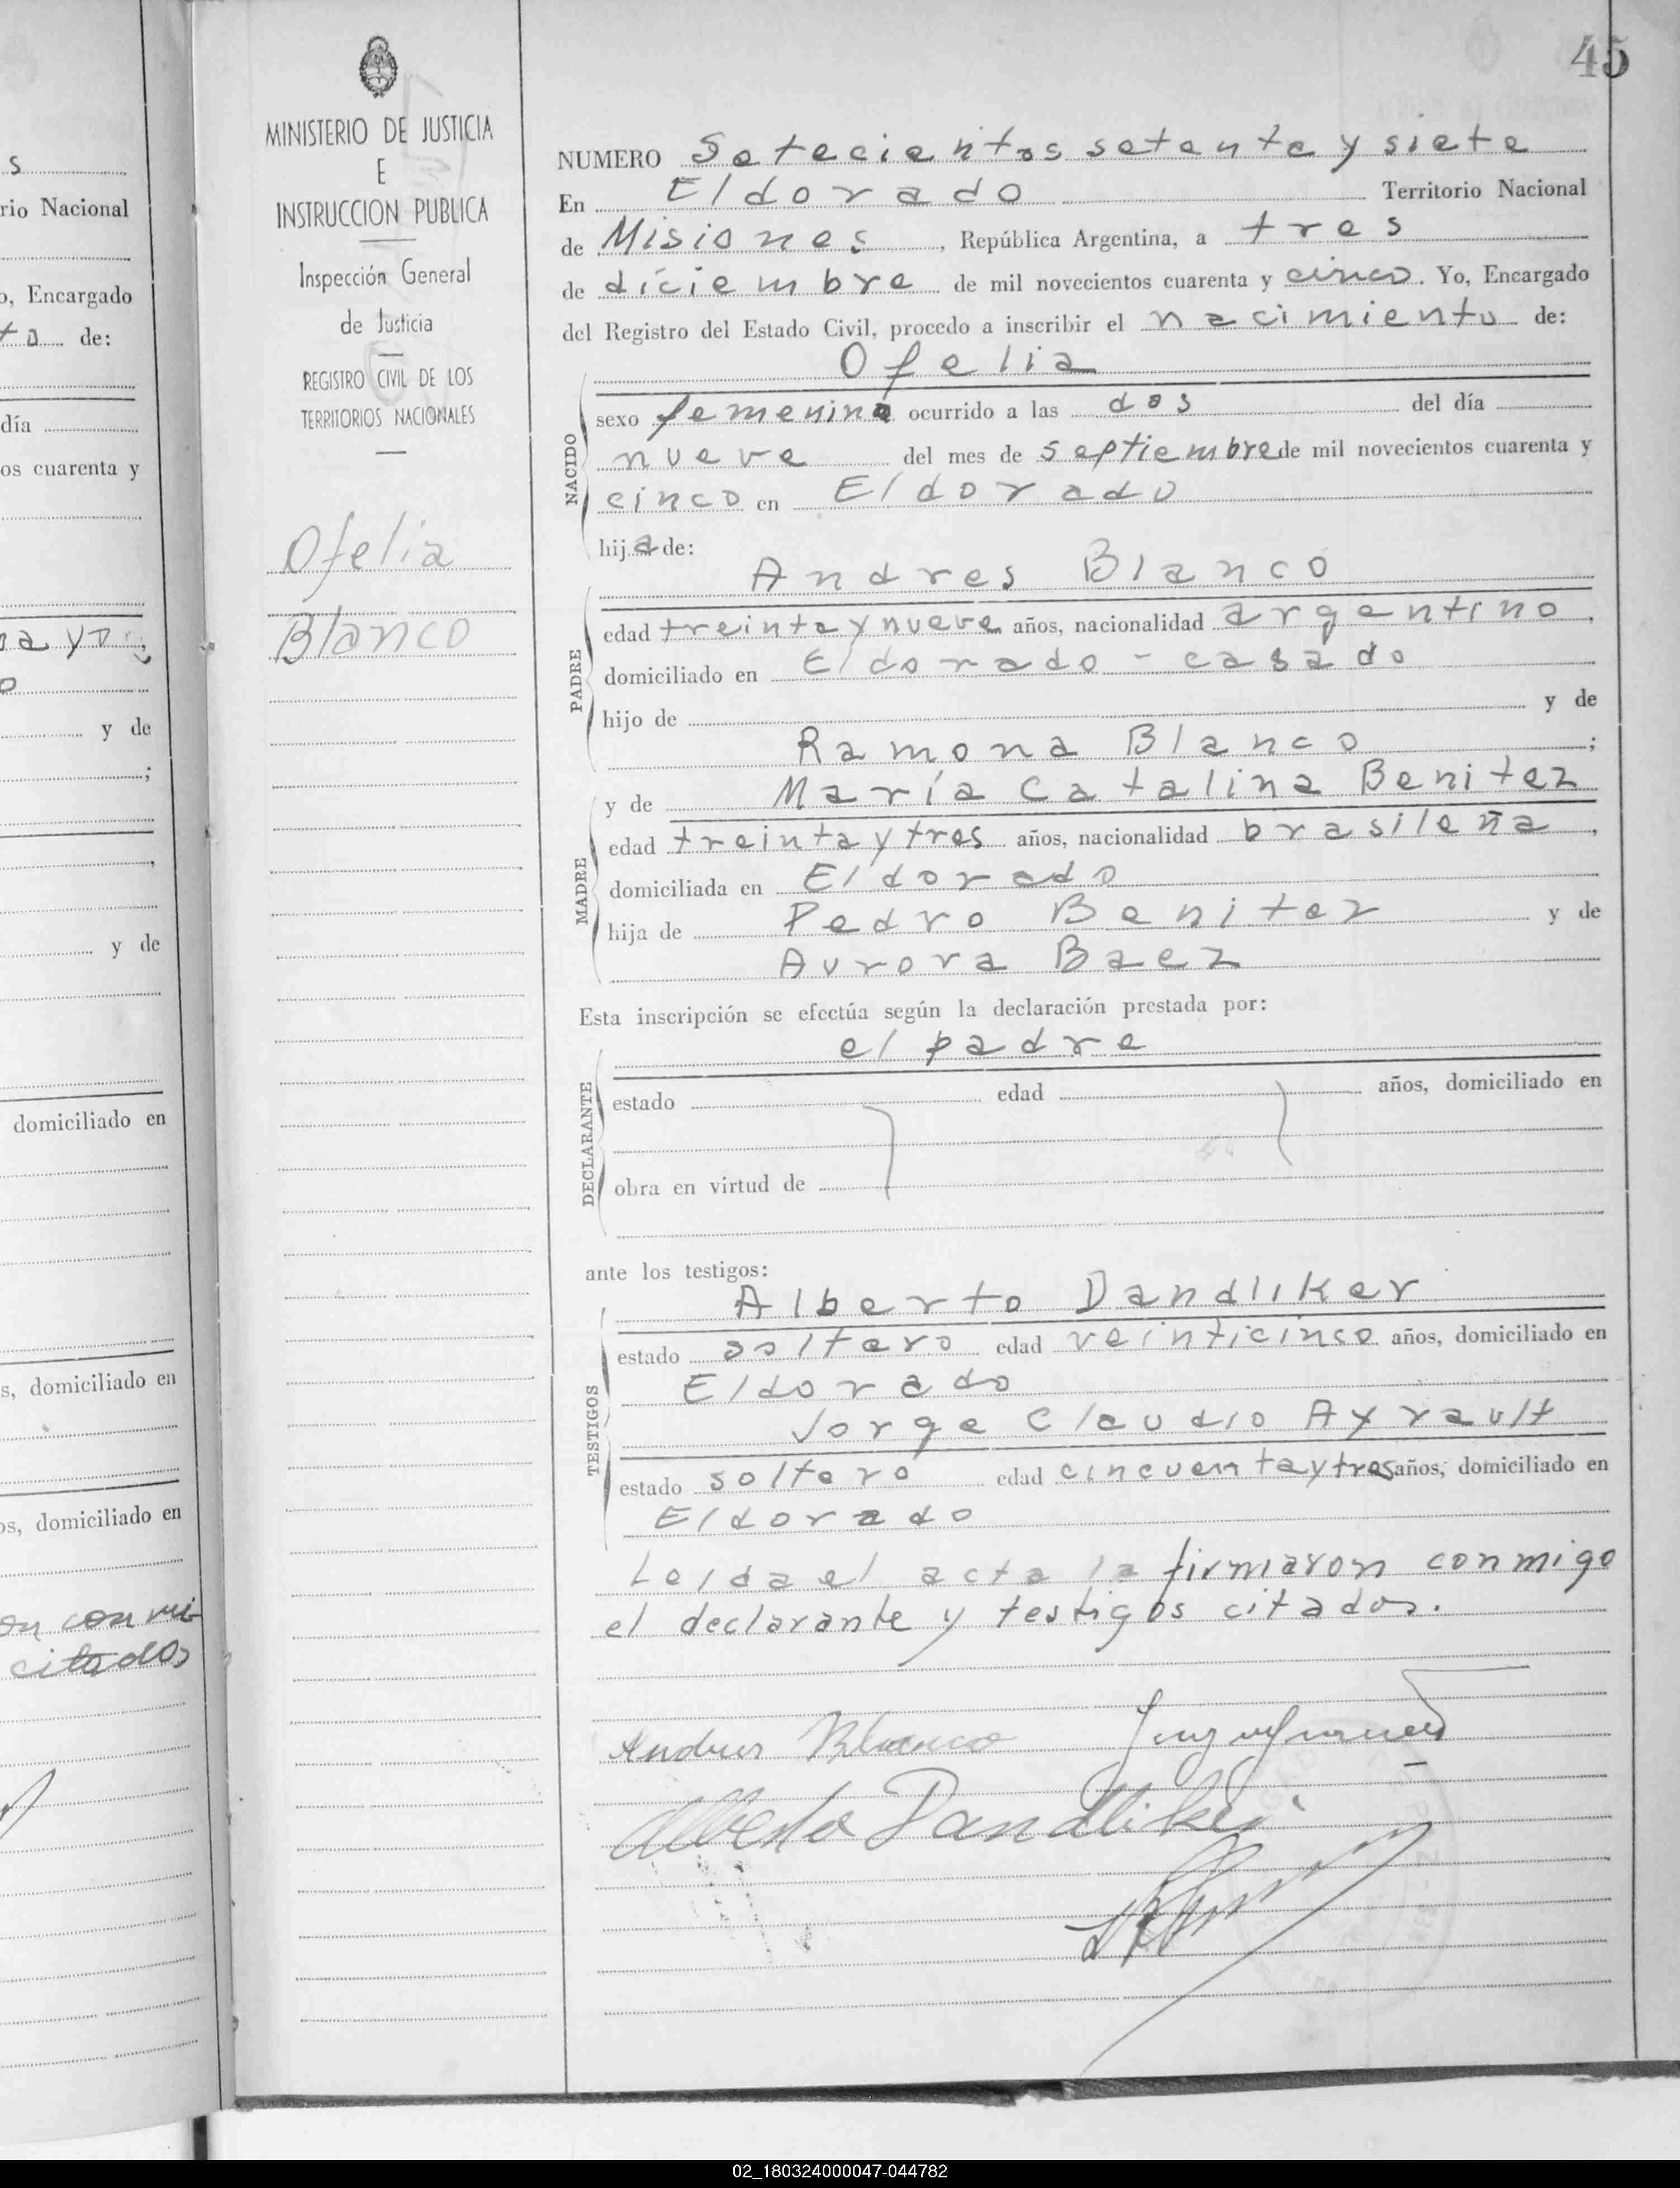 45
MINISTERIO DE JUSTICIA
E
INSTRUCCION PUBLICA
Inspección General
de Justicia
REGISTRO CIVIL DE LOS
TERRITORIOS NACIONALES
Ofelia
Blanco
NUMERO Setecientos setenta y siete
En Eldorado Territorio Nacional
de Misiones, República Argentina, a tres
de diciembre de mil novecientos cuarenta y cinco. Yo, Encargado
del Registro del Estado Civil, procedo a inscribir el nacimiento de:
Ofelia
NACIDO
sexo femenina ocurrido a las dos del día
nueve del mes de septiembre de mil novecientos cuarenta y
cinco en Eldorado
hija de:
Andres Blanco
PADRE
edad treinta y nueve años, nacionalidad argentino,
domiciliado en Eldorado - casado
hijo de y de
Ramona Blanco;
y de María Catalina Benitez
MADRE
edad treinta y tres años, nacionalidad brasileña,
domiciliada en Eldorado
hija de Pedro Benitez y de
Aurora Baez
Esta inscripción se efectúa según la declaración prestada por:
el padre
DECLARANTE
estado edad años, domiciliado en
obra en virtud de
ante los testigos:
Alberto Dandliker
TESTIGOS
estado soltero edad veinticinco años, domiciliado en
Eldorado
Jorge Claudio Ayrault
estado soltero edad cincuenta y tres años, domiciliado en
Eldorado
Leida el acta la firmaron conmigo
el declarante y testigos citados.
Andres Blanco
Alberto Dandliker
s
rio Nacional
o, Encargado
to de:
día
os cuarenta y
y de
;
,
y de
domiciliado en
s, domiciliado en
os, domiciliado en
on conmi
citados
02_180324000047-044782